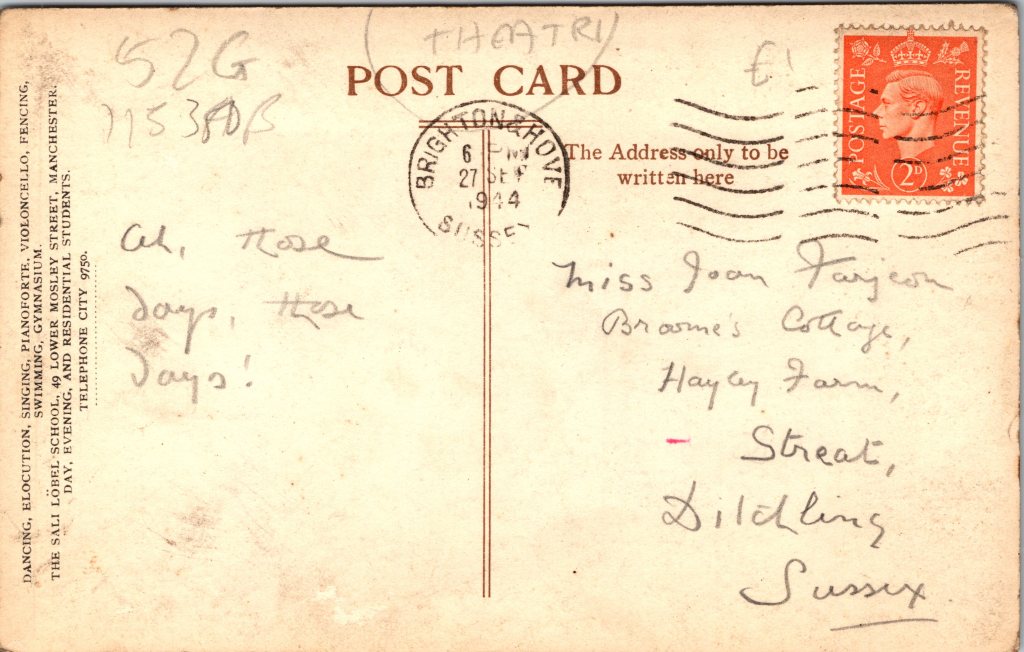 52G
(THEATRE)
£1
POST CARD
BRIGHTON & HOVE
6 PM
27 SEP
1944
SUSSEX
POSTAGE
REVENUE
2D
The Address only to be
written here
Ah, those
days, those
days!
Miss Joan Farjeon
Broome's Cottage,
Hayley Farm,
Streat,
Ditchling
Sussex
DANCING, ELOCUTION, SINGING, PIANOFORTE, VIOLONCELLO, FENCING,
SWIMMING, GYMNASIUM.
THE SALI LÖBEL SCHOOL, 49 LOWER MOSLEY STREET, MANCHESTER.
DAY, EVENING, AND RESIDENTIAL STUDENTS.
TELEPHONE CITY 9750.